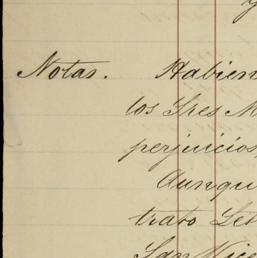 y
Notas. Habien
los Tres M
perjuicios
Aunqu
trato Let
San Vice